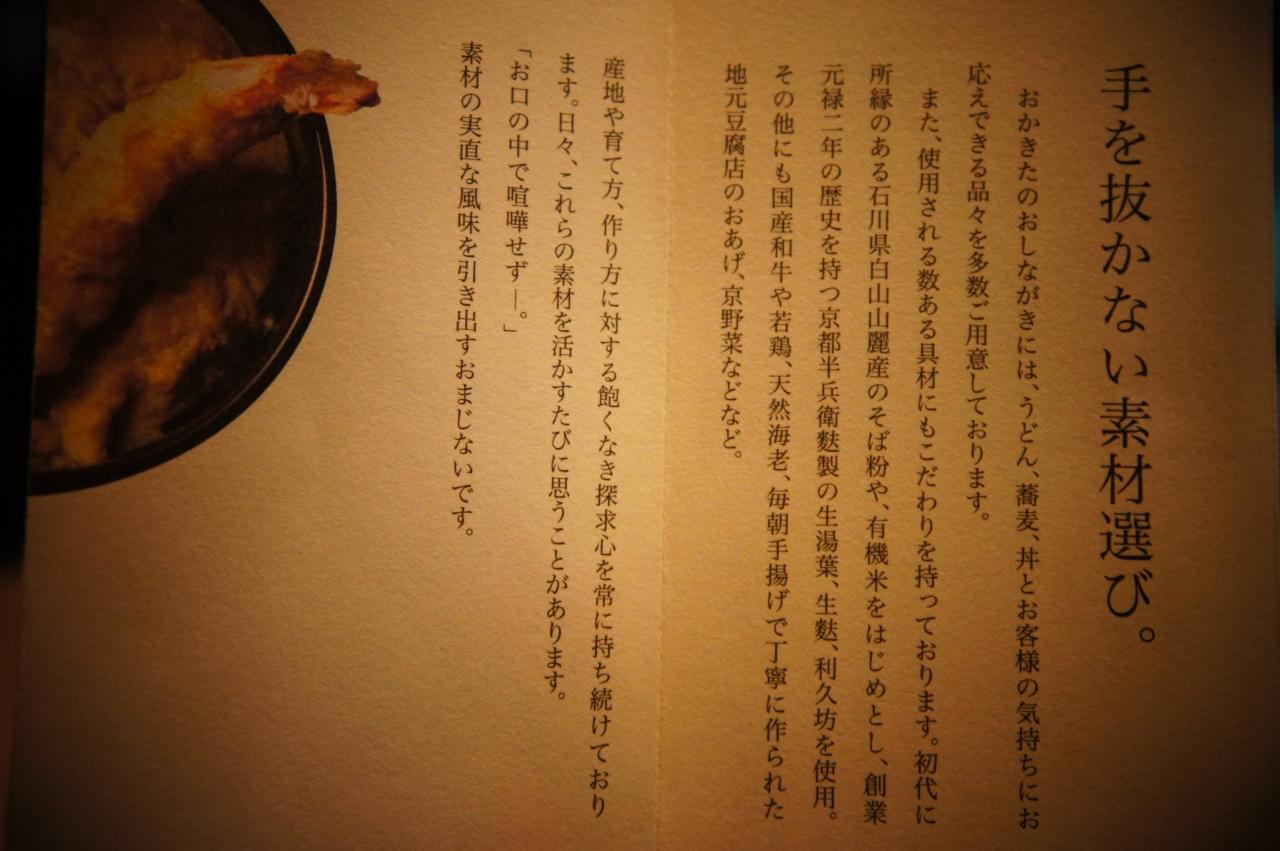 手を抜かない素材選び。
おかきたのおしながきには、うどん、蕎麦、丼とお客様の気持ちにお
応えできる品々を多数ご用意しております。
また、使用される数ある具材にもこだわりを持っております。初代に
所縁のある石川県白山山麗産のそば粉や、有機米をはじめとし、創業
元禄二年の歴史を持つ京都半兵衛麩製の生湯葉、生麩、利久坊を使用。
その他にも国産和牛や若鶏、天然海老、毎朝手揚げで丁寧に作られた
地元豆腐店のおあげ、京野菜などなど。
産地や育て方、作り方に対する飽くなき探求心を常に持ち続けており
ます。日々、これらの素材を活かすたびに思うことがあります。
「お口の中で喧嘩せず―。」
素材の実直な風味を引き出すおまじないです。